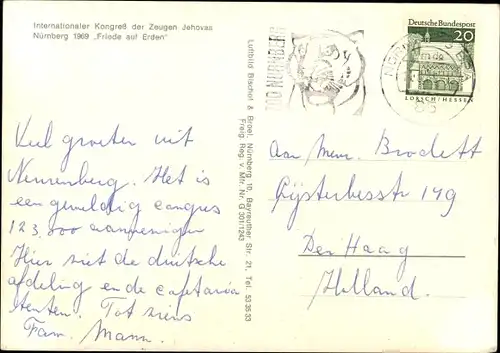 Internationaler Kongreß der Zeugen Jehovas
Nürnberg 1969 „Friede auf Erden"
Veel groeten uit
Neurenberg. Het is
een geweldig congres
123.000 aanwezigen
Hier ziet de duitse
afdeling en de cafetaria
tenten. Tot ziens
Fam. Mann.
Luftbild Bischof & Broel, Nürnberg 10, Bayreuther Str. 21, Tel. 53 35 33
Freig. Reg. v. Mfr. Nr. G 301/1243
ZOO NÜRNBERG
Deutsche Bundespost
20
LORSCH/HESSEN
Aan Mevr. Brodett
Lijsterbesstr 149
Den Haag
Holland.